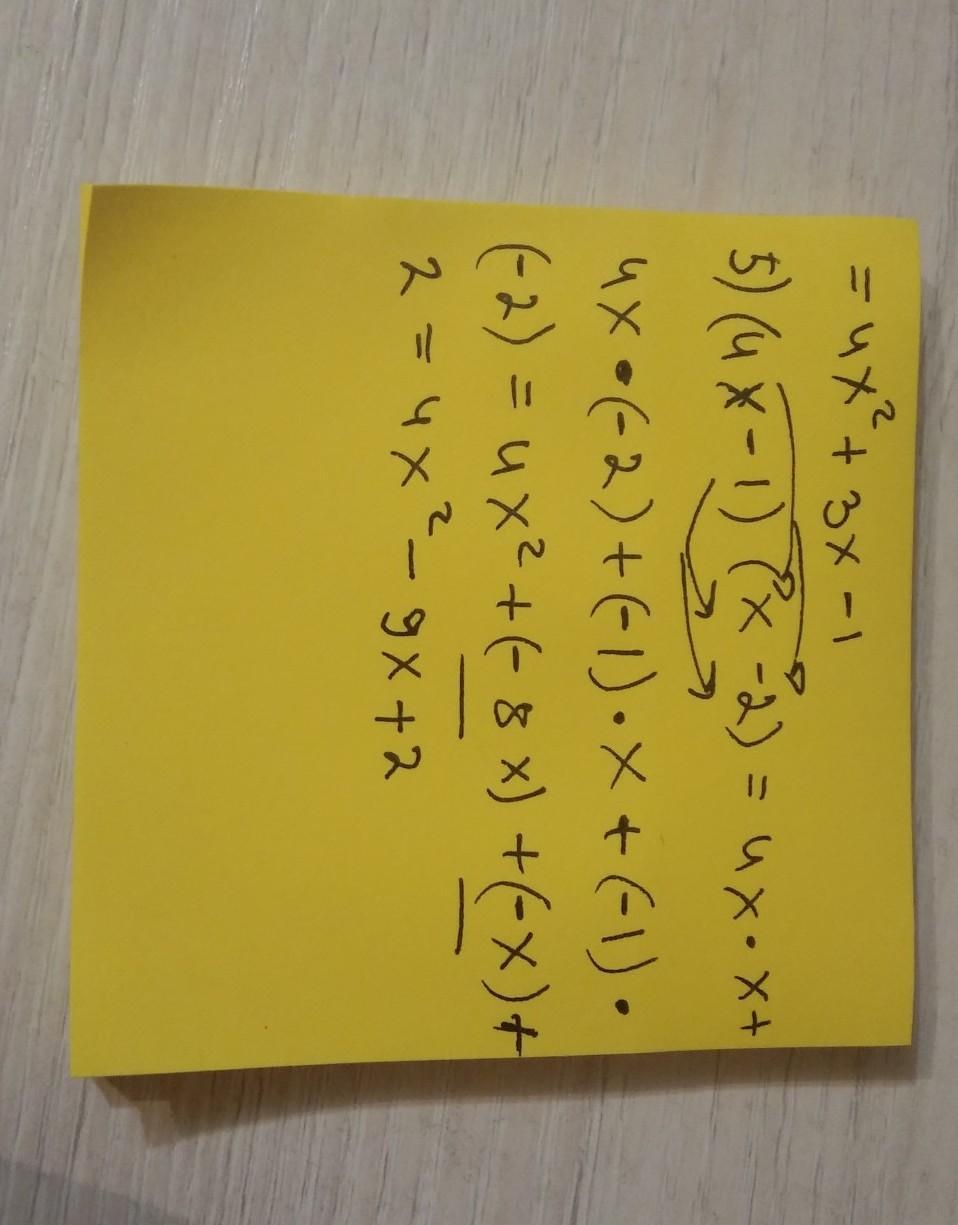 = 4x² + 3x - 1
5) (4x - 1) (x - 2) = 4x · x +
4x · (-2) + (-1) · x + (-1) ·
(-2) = 4x² + (-8x) + (-x) +
2 = 4x² - 9x + 2